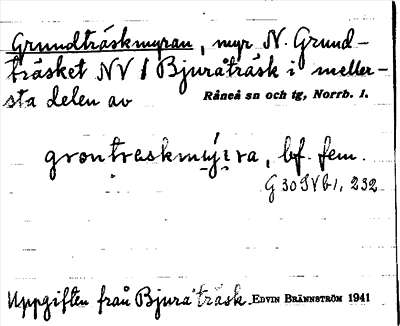 Grundträskmyran, myr N. Grund-
träsket NV / Bjuråträsk i meller-
sta delen av Råneå sn och tg, Norrb. l.
grontraskmýra, bf. fem.
G 30 SV b 1, 232
Uppgiften från Bjuråträsk. EDVIN BRÄNNSTRÖM 1941